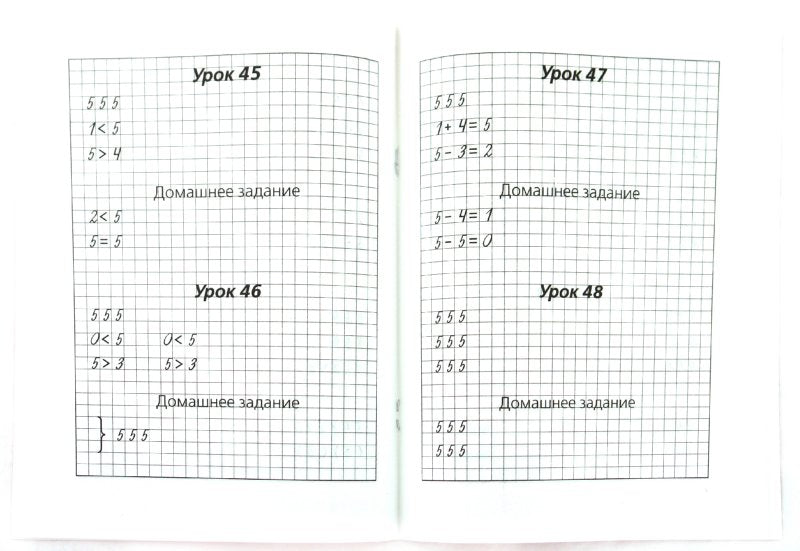 Урок 45
5 5 5
1 < 5
5 > 4
Домашнее задание
2 < 5
5 = 5
Урок 46
5 5 5
0 < 5 0 < 5
5 > 3 5 > 3
Домашнее задание
} 5 5 5
Урок 47
5 5 5
1 + 4 = 5
5 - 3 = 2
Домашнее задание
5 - 4 = 1
5 - 5 = 0
Урок 48
5 5 5
5 5 5
5 5 5
Домашнее задание
5 5 5
5 5 5